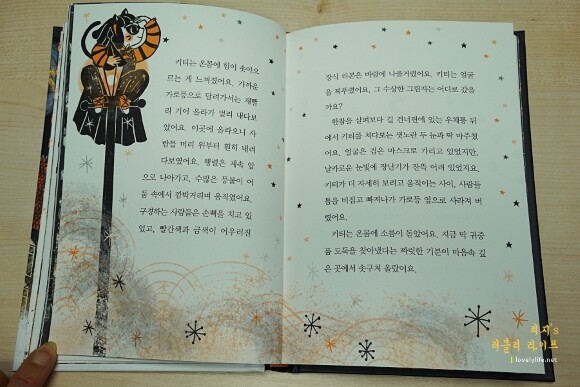 키티는 온몸에 힘이 솟아오
르는 게 느껴졌어요. 가까운
가로등으로 달려가서는 재빨
리 기어 올라가 멀리 내다보
았어요. 이곳에 올라오니 사
람들 머리 위부터 훤히 내려
다보였어요. 행렬은 계속 앞
으로 나아가고, 수많은 등불이 어
둠 속에서 깜박거리며 움직였어요.
구경하는 사람들은 손뼉을 치고 있
었고, 빨간색과 금색이 어우러진
장식 리본은 바람에 나풀거렸어요. 키티는 얼굴
을 찌푸렸어요. 그 수상한 그림자는 어디로 갔을
까요?
한참을 살펴보다 길 건너편에 있는 우체통 뒤
에서 키티를 쳐다보는 샛노란 두 눈과 딱 마주쳤
어요. 얼굴은 검은 마스크로 가리고 있었지만,
날카로운 눈빛에 장난기가 잔뜩 어려 있었지요.
키티가 더 자세히 보려고 움직이는 사이, 사람들
틈을 비집고 빠져나가 가로등 옆으로 사라져 버
렸어요.
키티는 온몸에 소름이 돋았어요. 지금 막 귀중
품 도둑을 찾아냈다는 짜릿한 기분이 마음속 깊
은 곳에서 솟구쳐 올랐어요.
리지's
러블리 라이프
lovelylife.net